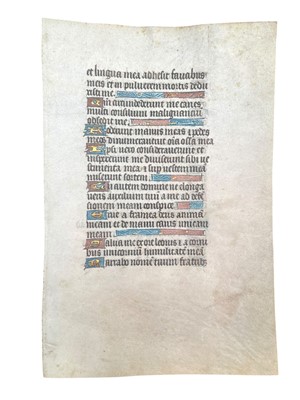 et lingua mea adhesit faucibus
meis et in pulverem mortis dedu
xisti me.
Qm circundederunt me canes
multi consilium malignanciū
obsedit me.
Foderunt manus meas et pedes
meos dinumeraverunt oīa ossa mea
Ipsi vero consideraverunt et
inspexerunt me diviserunt sibi ve
stimenta mea et sup vestem mea
miserunt sortem.
Tu autem domine ne elonga
veris auxilium tuū a me ad defe
nsionem meam conspice.
Erue a framea deus animā
meam et de manu canis unicam
meam
Salva me ex ore leonis et a cornī
bus unicornium humilitatē meā
Narrabo nomē tuum fratribꝰ